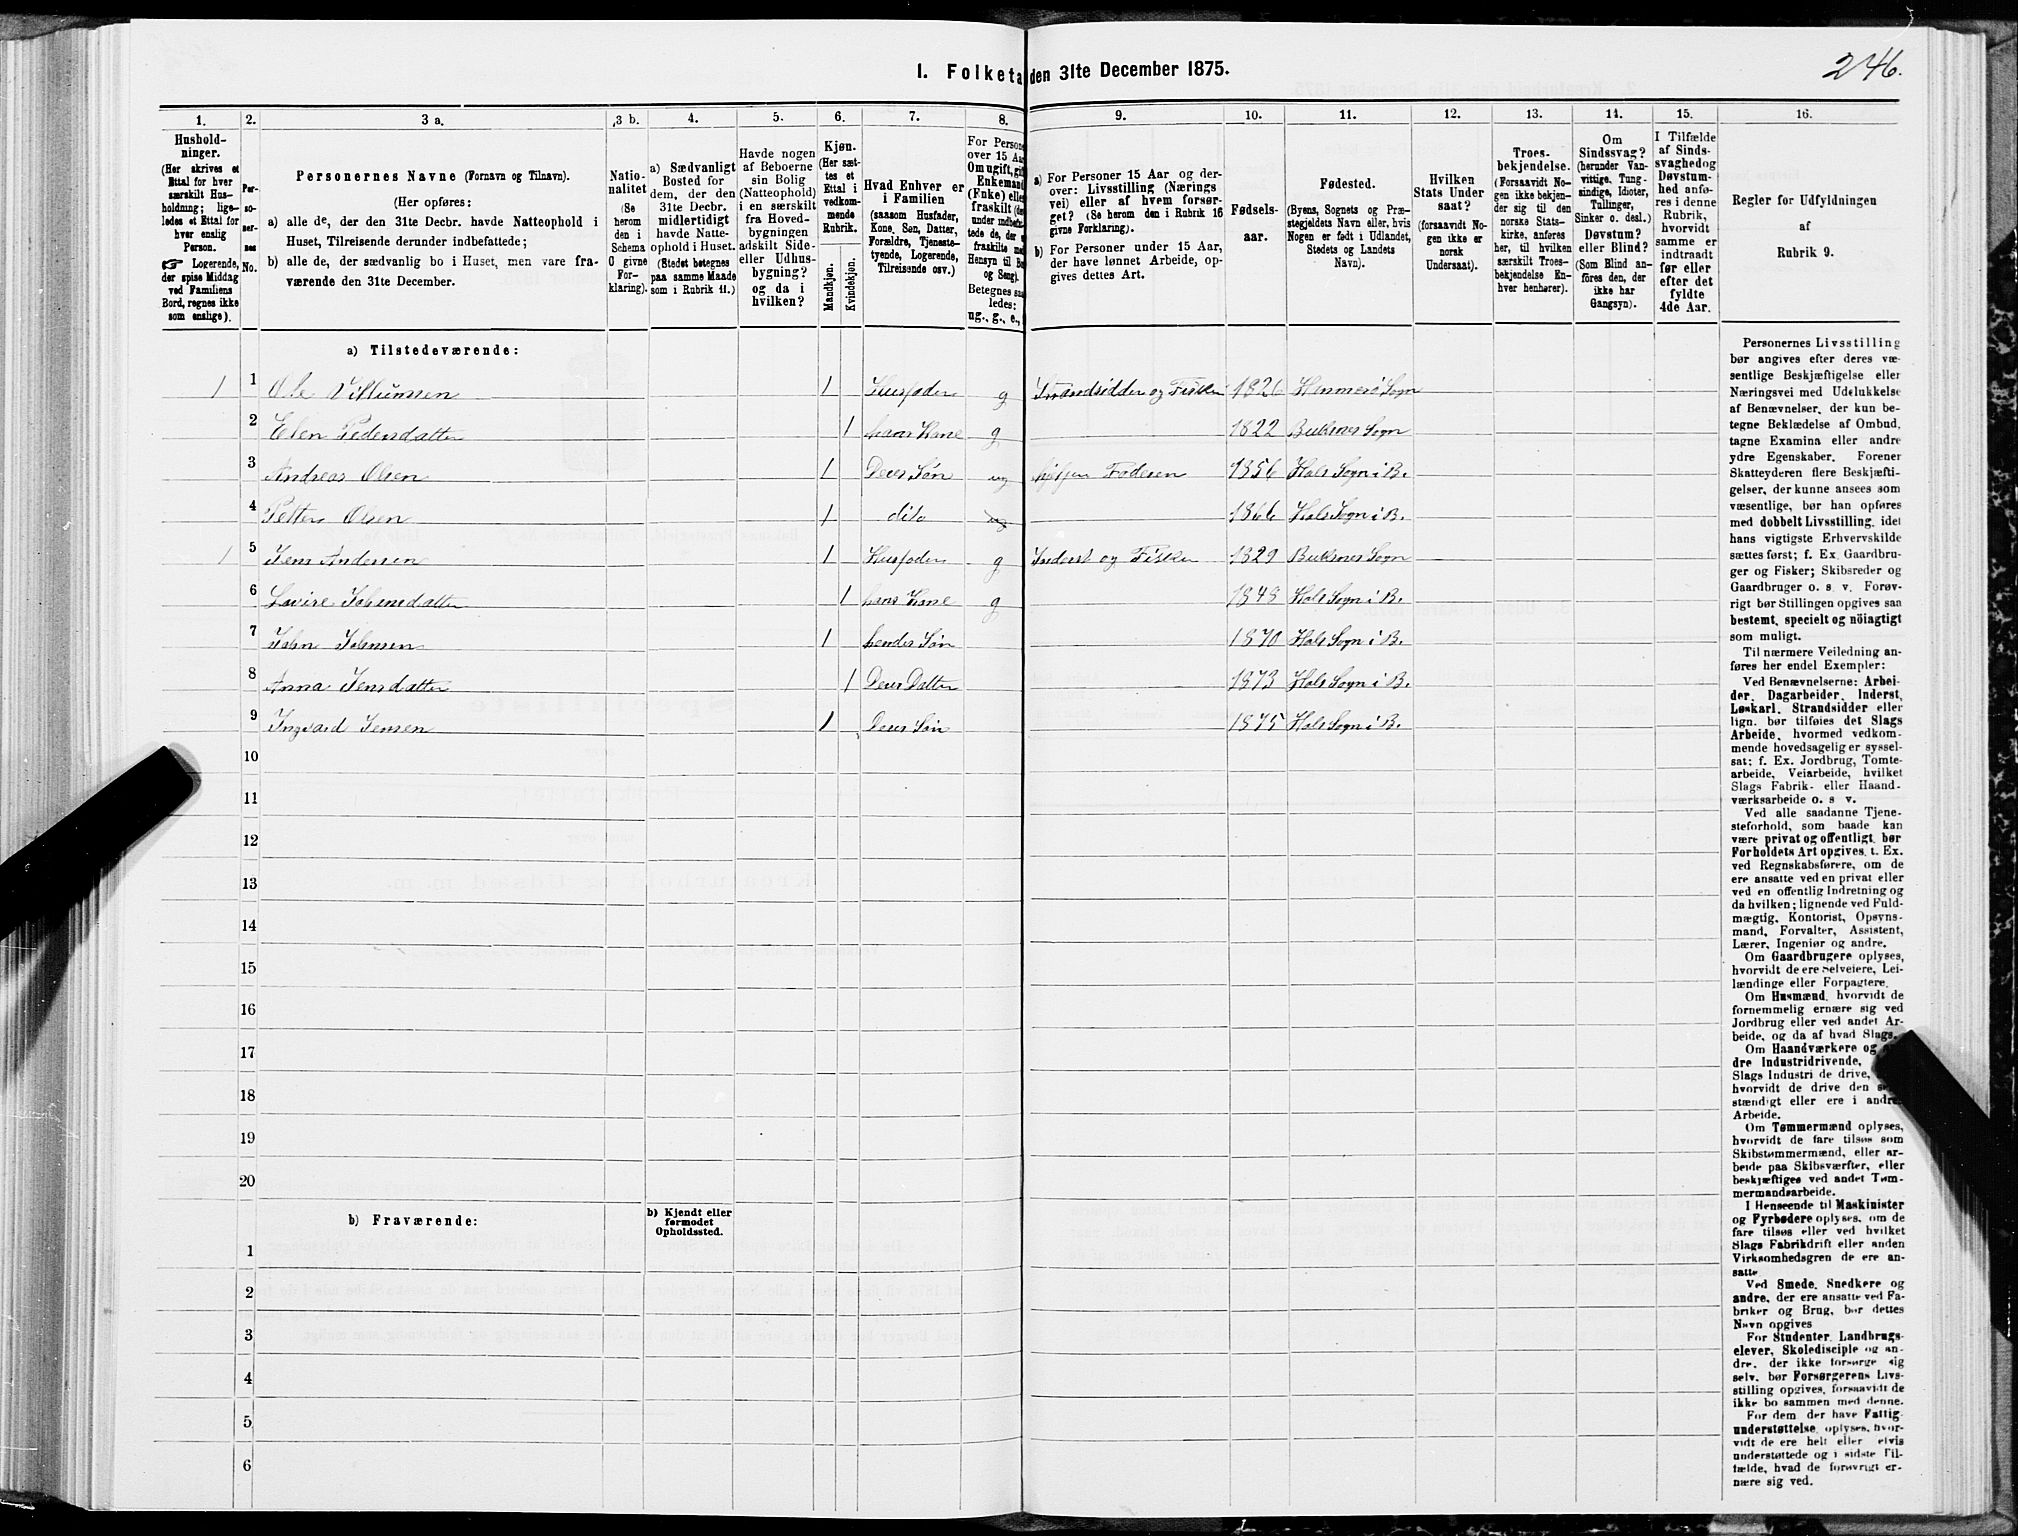 246.
I. Folketa den 31te December 1875.
1. 2. 3 a. 3 b. 4. 5. 6. 7. 8. 9. 10. 11. 12. 13. 14. 15. 16.
Hushold-
ninger.
(Her skrives et
Ettal for hver
særskilt Hus-
holdning; lige-
ledes et Ettal for
hver enslig
Person.
☞ Logerende,
der spise Middag
ved Familiens
Bord, regnes ikke
som enslige).
Per-
so-
ner-
nes
No.
Personernes Navne (Fornavn og Tilnavn).
(Her opføres:
a) alle de, der den 31te Decbr. havde Natteophold i
Huset, Tilreisende derunder indbefattede;
b) alle de, der sædvanlig bo i Huset, men vare fra-
værende den 31te December.
Natio-
nalitet
(Se
herom
den i
Schema
O givne
For-
klaring).
a) Sædvanligt
Bosted for
dem, der den
31te Decbr.
midlertidigt
havde Natte-
ophold i Huset.
(Stedet betegnes
paa samme Maade
som i Rubrik 11.)
Havde nogen
af Beboerne
sin Bolig
(Natteophold)
i en særskilt
fra Hoved-
bygningen
adskilt Side-
eller Udhus-
bygning?
og da i
hvilken?
Kjøn.
(Her sæt-
tes et
Ettal i
vedkom-
mende
Rubrik.
Mandkjøn.
Kvindekjøn.
Hvad Enhver er
i Familien
(saasom Husfader,
Kone, Søn, Datter,
Forældre, Tjeneste-
tyende, Logerende,
Tilreisende osv.)
For Persone
over 15 Aa
Om ugift, gif
Enkemand
(Enke) elle
fraskilt (de
under indbef
tede de, der e
fraskilte me
Hensyn til Bo
og Seng).
Betegnes saa
ledes:
ug., g., e.,
a) For Personer 15 Aar og der-
over: Livsstilling (Nærings
vei) eller af hvem forsør-
get? (Se herom den i Rubrik 16
givne Forklaring).
b) For Personer under 15 Aar,
der have lønnet Arbeide, op-
gives dettes Art.
Fødsels-
aar.
Fødested.
(Byens, Sognets og Præ-
stegjeldets Navn eller, hvis
Nogen er født i Udlandet,
Stedets og Landets
Navn).
Hvilken
Stats Under
saat?
(forsaavidt No-
gen ikke er
norsk
Undersaat).
Troes-
bekjendelse.
(Forsaavidt No-
gen ikke bekjen-
der sig til den
norske Stats-
kirke, anføres
her, til hvilken
særskilt Troes-
bekjendelse En-
hver henhører).
Om
Sindssvag?
(herunder Van-
vittige, Tung-
sindige, Idioter,
Tullinger,
Sinker o. desl.)
Døvstum?
eller Blind?
(Som Blind an-
føres den, der
ikke har
Gangsyn).
I Tilfælde
af Sinds-
svaghed og
Døvstum-
hed anfø-
res i denne
Rubrik,
hvorvidt
samme er
indtraadt
før eller
efter det
fyldte
4de Aar.
Regler for Udfyldningen
af
Rubrik 9.
a) Tilstedeværende:
1 1 Ole Villumsen 1 Husfader g Strandsidder og Fisker 1826 Hammerø Sogn
2 Elen Pedersdatter 1 hans Kone g 1822 Buksnes Sogn
3 Andreas Olsen 1 Deres Søn ug hjelper Faderen 1856 Hols Sogn i B.
4 Petter Olsen 1 dito ug 1866 Hols Sogn i B.
1 5 Jens Andersen 1 Husfader g Inderst og Fisker 1829 Buksnes Sogn
6 Lovise Johnsdatter 1 hans Kone g 1848 Hols Sogn i B.
7 John Johnsen 1 hendes Søn 1870 Hols Sogn i B.
8 Anna Jensdatter 1 Deres Datter 1873 Hols Sogn i B.
9 Ingvard Jensen 1 Deres Søn 1875 Hols Sogn i B.
10
11
12
13
14
15
16
17
18
19
20
b) Fraværende:
b) Kjendt eller
formodet
Opholdssted.
1
2
3
4
5
6
Personernes Livsstilling
bør angives efter deres væ-
sentlige Beskjæftigelse eller
Næringsvei med Udelukkelse
af Benævnelser, der kun be-
tegne Beklædelse af Ombud,
tagne Examina eller andre
ydre Egenskaber. Forener
Skatteyderen flere Beskjæfti-
gelser, der kunne ansees som
væsentlige, bør han opføres
med dobbelt Livsstilling, idet
hans vigtigste Erhvervskilde
sættes først; f. Ex. Gaardbru-
ger og Fisker; Skibsreder og
Gaardbruger o. s. v. Forøv-
rigt bør Stillingen opgives saa
bestemt, specielt og nöiagtigt
som muligt.
Til nærmere Veiledning an-
føres her endel Exempler:
Ved Benævnelserne: Arbei-
der, Dagarbeider, Inderst,
Løskarl, Strandsidder eller
lign. bør tilføies det Slags
Arbeide, hvormed vedkom-
mende hovedsagelig er syssel-
sat; f. Ex. Jordbrug, Tomte-
arbeide, Veiarbeide, hvilket
Slags Fabrik- eller Haand-
værksarbeide o. s v.
Ved alle saadanne Tjene-
steforhold, som baade kan
være privat og offentligt, bør
Forholdets Art opgives, t. Ex.
ved Regnskabsførere, om de
ere ansatte ved en privat eller
ved en offentlig Indretning og
da hvilken; lignende ved Fuld-
mægtig, Kontorist, Opsyns-
mand, Forvalter, Assistent,
Lærer, Ingeniør og andre.
Om Gaardbrugere oplyses,
hvorvidt de ere Selveiere, Lei-
lændinge eller Forpagtere.
Om Husmænd, hvorvidt de
fornemmelig ernære sig ved
Jordbrug eller ved andet Ar-
beide, og da af hvad Slags.
Om Haandværkere og
dre Industridrivende,
Slags Industri de drive,
hvorvidt de drive den
stændigt eller ere i andres
Arbeide.
Om Tømmermænd oplyses,
hvorvidt de fare tilsøs som
Skibstømmermænd, eller ar-
beide paa Skibsværfter, eller
beskjæftiges ved andet Tøm-
mermandsarbeide.
I Henseende til Maskinister
og Fyrbødere oplyses, om de
fare tilsøs eller ved hvilket
Slags Fabrikdrift eller anden
Virksomhedsgren de ere an-
satte
Ved Smede, Snedkere og
andre, der ere ansatte ved Fa-
briker og Brug, bør dettes
Navn opgives
For Studenter, Landbrugs-
elever, Skoledisciple og an-
dre, der ikke forsørge sig
selv, bør Forsørgerens Livs-
stilling opgives, forsaavidt de
ikke bo sammen med denne.
For dem der have Fattig-
understøttelse, oplyses, hvor-
vidt de ere helt eller delvis
understøttede og i sidste Til-
fælde, hvad de forøvrigt er-
nære sig ved.